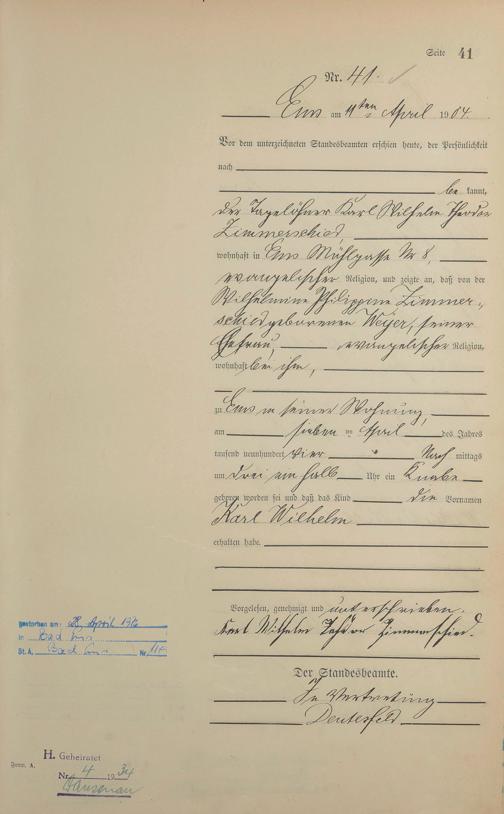 Seite 41
Nr. 41.
Ems am 11ten April 1904.
Vor dem unterzeichneten Standesbeamten erschien heute, der Persönlichkeit
nach
be kannt,
der Tagelöhner Karl Wilhelm Theodor
Zimmerschied,
wohnhaft in Ems Mühlgasse Nr 8,
evangelischer Religion, und zeigte an, daß von der
Wilhelmine Philippine Zimmer-
schied geborenen Weyer, seiner
Ehefrau, evangelischer Religion,
wohnhaft bei ihm,
zu Ems in seiner Wohnung,
am sieben ten April des Jahres
tausend neunhundert vier Nach mittags
um drei ein halb Uhr ein Knabe
geboren worden sei und daß das Kind die Vornamen
Karl Wilhelm
erhalten habe.
Vorgelesen, genehmigt und unterschrieben.
Karl Wilhelm Theodor Zimmerschied.
Der Standesbeamte.
In Vertretung
gestorben am: April
in Bad Ems
St.A. Bad Ems Nr.
H. Geheiratet
Nr. 4 1934
Form. A.